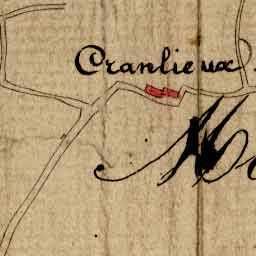 Cranlieux
M